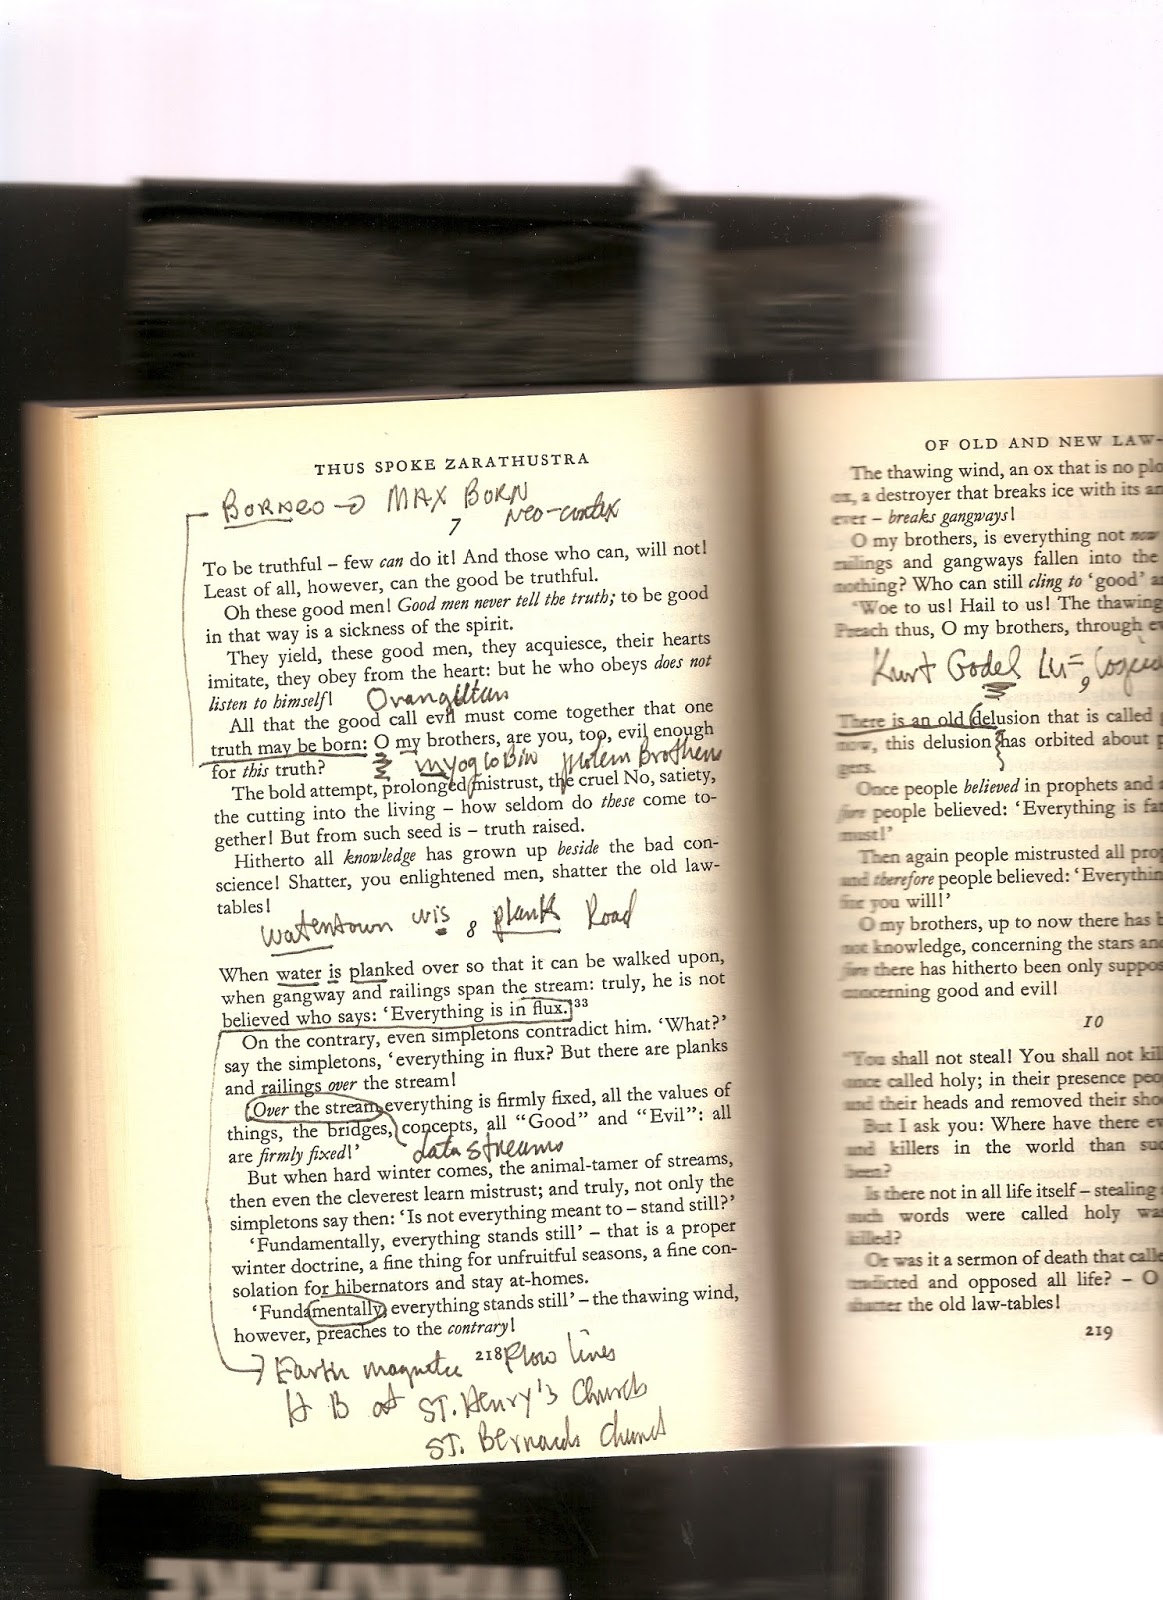 THUS SPOKE ZARATHUSTRA
BORNEO → MAX BORN
Neo-cortex
7
To be truthful – few can do it! And those who can, will not!
Least of all, however, can the good be truthful.
Oh these good men! Good men never tell the truth; to be good
in that way is a sickness of the spirit.
They yield, these good men, they acquiesce, their hearts
imitate, they obey from the heart: but he who obeys does not
listen to himself!
Orangutan
All that the good call evil must come together that one
truth may be born: O my brothers, are you, too, evil enough
for this truth?
myoglobin protein Brothers
The bold attempt, prolonged mistrust, the cruel No, satiety,
the cutting into the living – how seldom do these come to-
gether! But from such seed is – truth raised.
Hitherto all knowledge has grown up beside the bad con-
science! Shatter, you enlightened men, shatter the old law-
tables!
Watertown wis plank Road
8
When water is planked over so that it can be walked upon,
when gangway and railings span the stream: truly, he is not
believed who says: ‘Everything is in flux.’33
On the contrary, even simpletons contradict him. ‘What?’
say the simpletons, ‘everything in flux? But there are planks
and railings over the stream!
‘Over the stream everything is firmly fixed, all the values of
things, the bridges, concepts, all “Good” and “Evil”: all
are firmly fixed!’
data streams
But when hard winter comes, the animal-tamer of streams,
then even the cleverest learn mistrust; and truly, not only the
simpletons say then: ‘Is not everything meant to – stand still?’
‘Fundamentally, everything stands still’ – that is a proper
winter doctrine, a fine thing for unfruitful seasons, a fine con-
solation for hibernators and stay at-homes.
‘Fundamentally, everything stands still’ – the thawing wind,
however, preaches to the contrary!
218
Earth magnetic Flow lines
H B at ST. Henry's Church
ST. Bernards Church
OF OLD AND NEW LAW-
The thawing wind, an ox that is no
ox, a destroyer that breaks ice with its
ever – breaks gangways!
O my brothers, is everything not now
railings and gangways fallen into the
nothing? Who can still cling to ‘good’
‘Woe to us! Hail to us! The thawing
Preach thus, O my brothers, through
Kurt Godel
9
There is an old delusion that is called
now, this delusion has orbited about
gers.
Once people believed in prophets and
fore people believed: ‘Everything is
must!’
Then again people mistrusted all
and therefore people believed:
fire you will!’
O my brothers, up to now there has
not knowledge, concerning the stars
fore there has hitherto been only
concerning good and evil!
10
‘You shall not steal! You shall not
once called holy; in their presence
and their heads and removed their
But I ask you: Where have there
and killers in the world than
been?
Is there not in all life itself – stealing
such words were called holy
killed?
Or was it a sermon of death that
and opposed all life? – O
shatter the old law-tables!
219